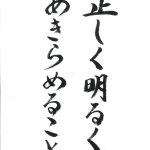 正しく明るく
めきらめること